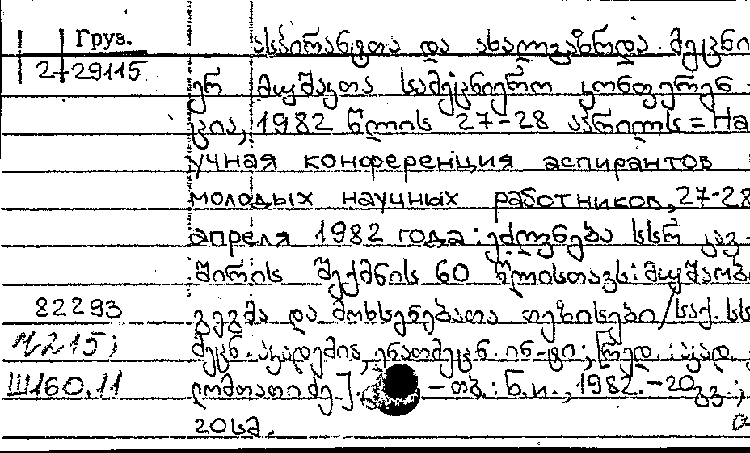 Груз.
ასპირანტთა და ახალგაზრდა მეცნი
2-29115
ერ მუშაკთა სამეცნიერო კონფერენ-
ცია, 1982 წლის 27-28 აპრილს = На
учная конференция аспирантов
молодых научных работников, 27-28
апреля 1982 года : ეძღვნება სსრ კავ-
შირის შექმნის 60 წლისთავს : მუშაობ
82293
გეგმა და მოხსენებათა თეზისები / საქ. სს
მეცნ. აკადემია, ენათმეცნ. ინ-ტი ; [რედ.: აკად.
Ш160.11
ლომთათიძე]. - თბ. : ბ.ი., 1982. - 20გვ. ;
20სმ.